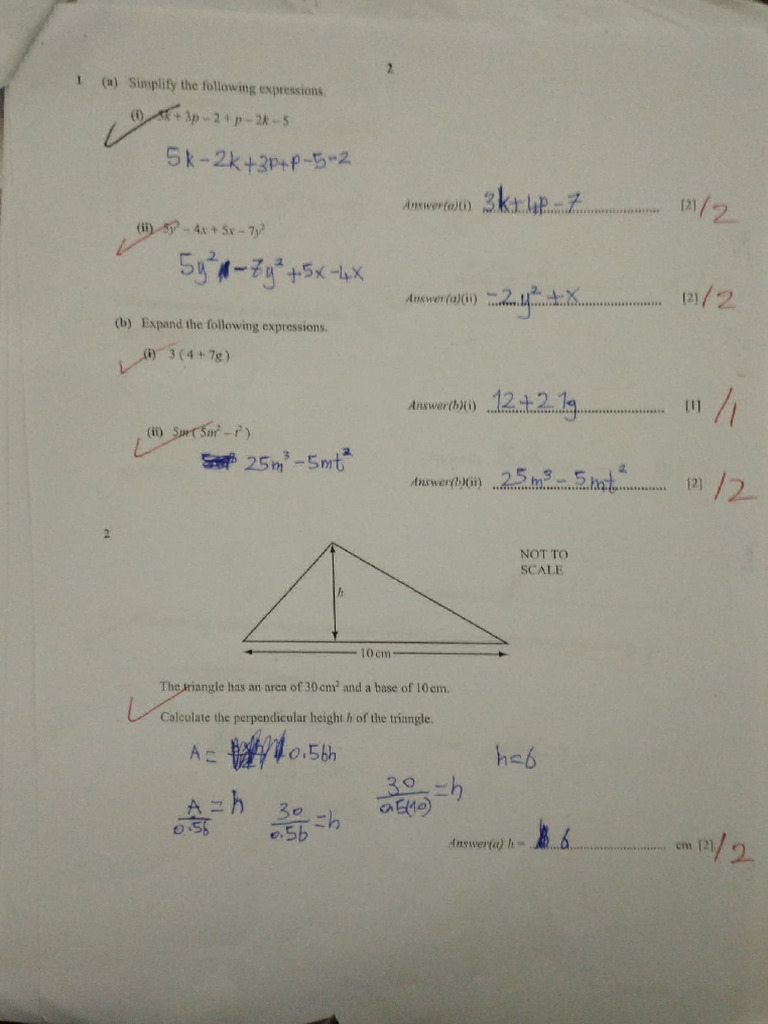 2
1 (a) Simplify the following expressions.
(i) 5k + 3p − 2 + p − 2k − 5
5k − 2k + 3p + p − 5 − 2
Answer(a)(i) 3k + 4p − 7 [2] /2
(ii) 5y² − 4x + 5x − 7y²
5y² − 7y² + 5x − 4x
Answer(a)(ii) −2y² + x [2] /2
(b) Expand the following expressions.
(i) 3 ( 4 + 7g )
Answer(b)(i) 12 + 21g [1] /1
(ii) 5m ( 5m² − t² )
25m³ − 5mt²
Answer(b)(ii) 25m³ − 5mt² [2] /2
2
NOT TO
SCALE
h
10 cm
The triangle has an area of 30 cm² and a base of 10 cm.
Calculate the perpendicular height h of the triangle.
A = 0.5bh h=6
A/0.5b = h 30/0.5b = h 30/0.5(10) = h
Answer(a) h = 6 cm [2] /2